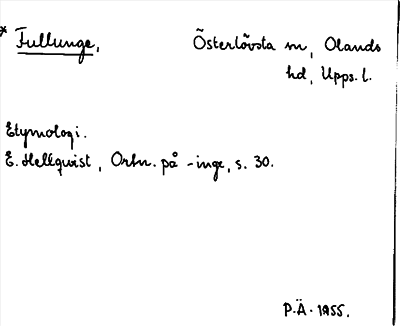 * Fullunge, Österlövsta sn, Olands
hd, Upps. l.
Etymologi.
E. Hellquist, Ortn. på -inge, s. 30.
P.Ä. 1955.